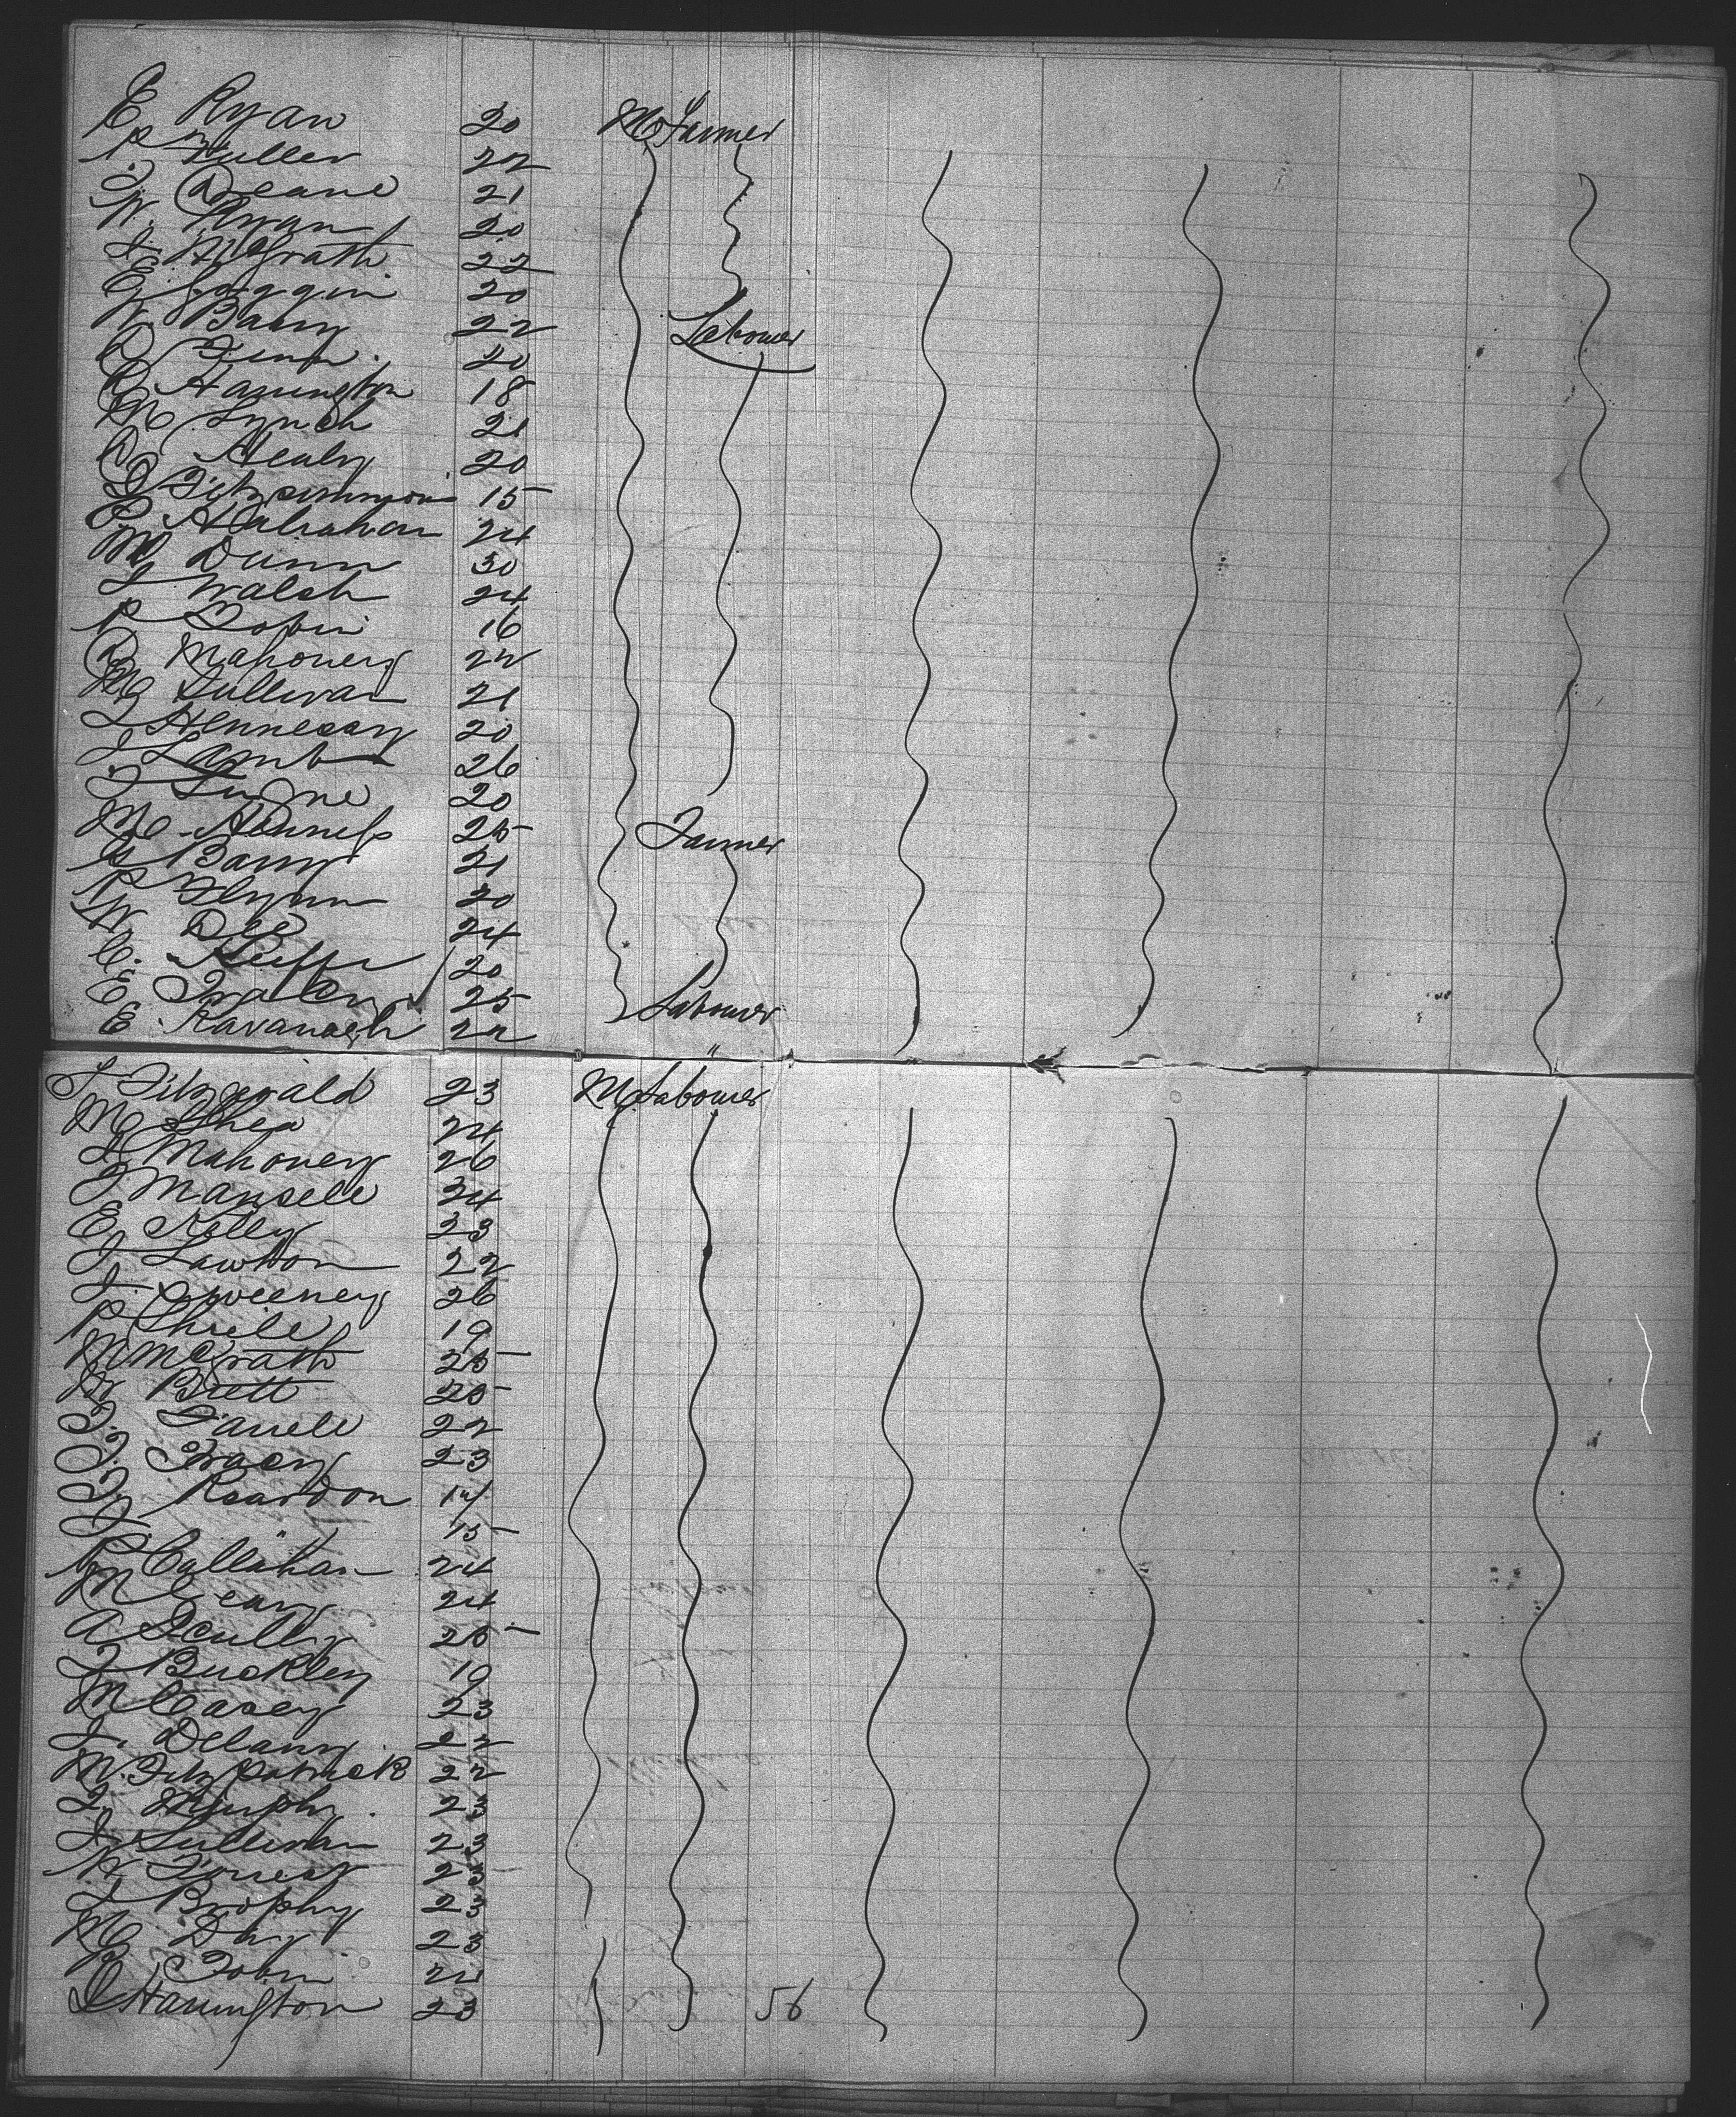 E Ryan 20 M Farmer
P Fuller 22
T. Deane 21
W. Ryan 20
J. McGrath 22
E Goggin 20
W. Barry 22 Labourer
D Finn. 20
D Harrington 18
M Lynch 21
D Healy 20
J Fitzsimmons 15
P. Hallahan 24
M Dunn 30
J Walsh 24
P Tobin 16
D Mahoney 22
M Sullivan 21
J Hennessy 20
J Lamb 26
T 20
M 25 Farmer
G Barry 21
P Flynn 20
W Dee 24
C. Keeffe 20
E. 25
E. Kavanagh 22 Labourer
J Fitzgerald 23 M Labourer
M Shea 24
J Mahoney 26
J Mansell 24
E Kelly 23
J Lawton 22
J. Sweeney 26
P Shiell 19
M McGrath 25
W Brett 25
T. Farrell 22
T. Tracy 23
T. Reardon 17
J. " 15
P Callahan 24
M Geary 24
A Scully 25
J Buckley 19
M Casey 23
J. Delany 22
M. Fitzpatrick 22
J. Murphy 23
J. Sullivan 23
W Forrest 23
J Brophy 23
M Day 23
P Tobin 24
J Harrington 23 56